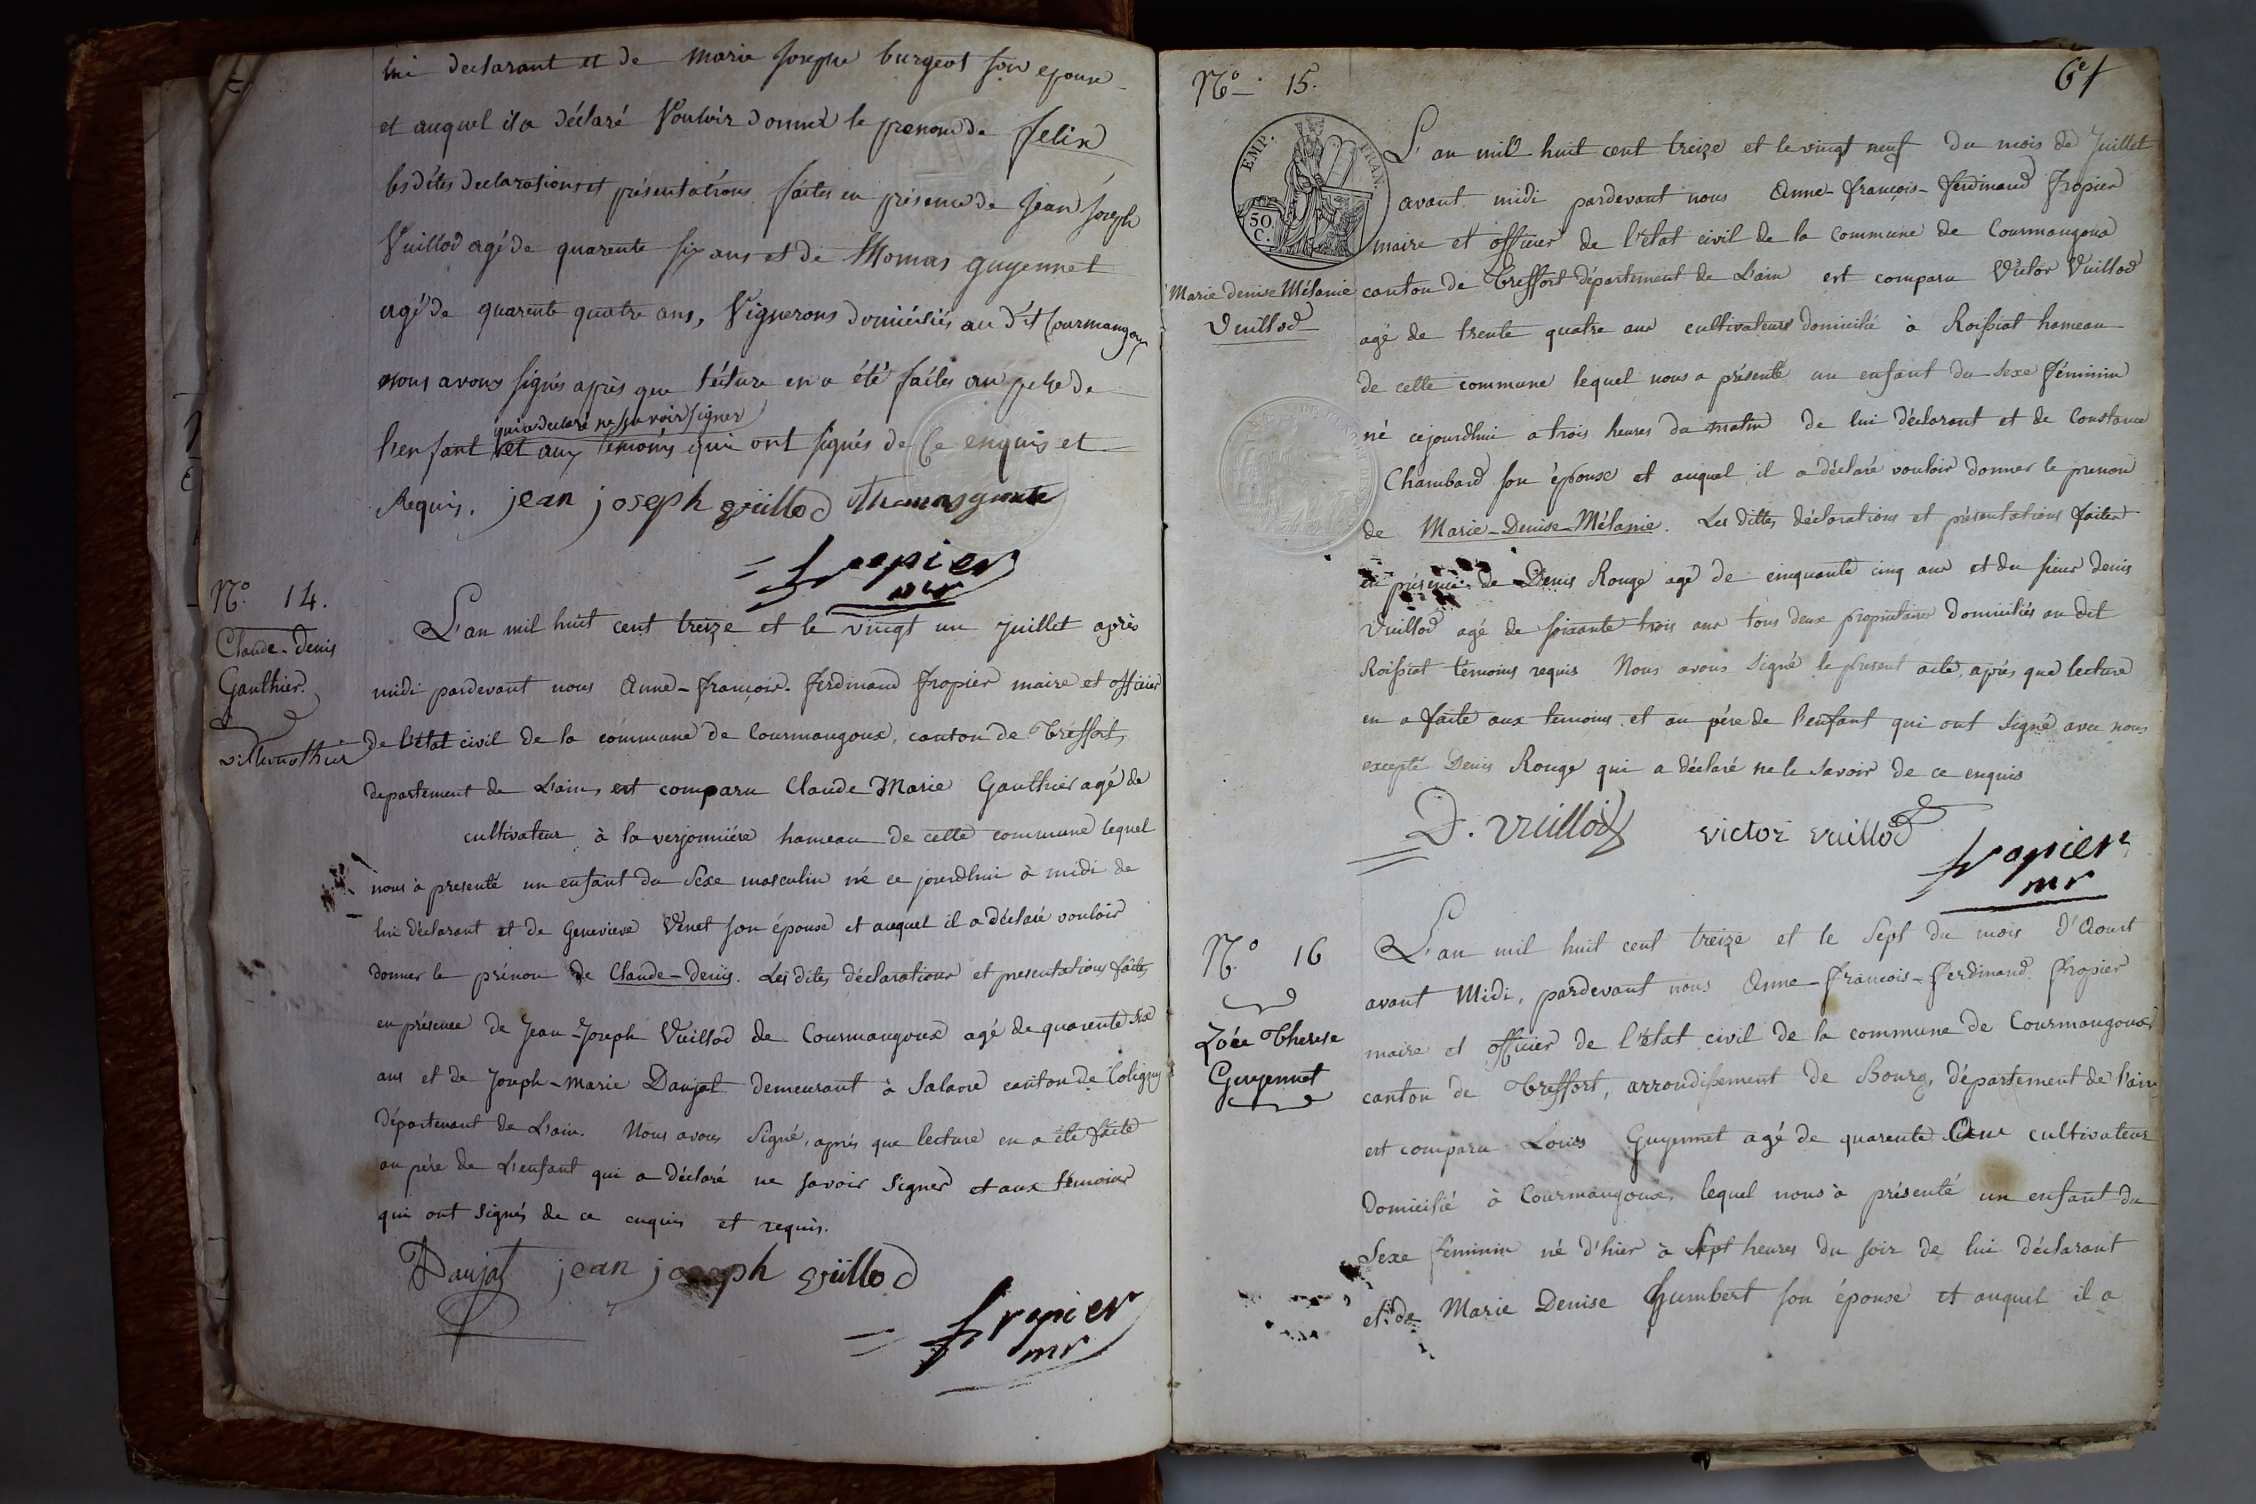 lui declarant et de marie Josephe burgeot son epouse
et auquel il a déclaré Vouloir donner le prenom de felix
les dites declarations et présentations faites en présence de Jean Joseph
Vuillod agé de quarente six ans et de Thomas guyennet
agé de quarente quatre ans, Vignerons domiciliés au dit Courmangoux
nous avons signés après que lécture en a été faites au pere de
qui a declaré ne savoir signer
l'enfant et aux témoins qui ont signés de Ce enquis et
Requis. jean joseph vüillod
fropier
mr
N.º 14.
Claude-Denis
Gauthier.
L'an mil huit cent treize et le vingt un Juillet après
midi pardevant nous Anne-François-Ferdinand Fropier maire et officier
de l'état civil de la commune de Courmangoux, canton de Treffort,
departement de L'ain, est comparu Claude Marie Gauthier agé de
cultivateur à la verjonniére hameau de cette commune lequel
nous à presenté un enfant du Sexe masculin né ce jourdhui à midi de
lui déclarant et de Genevieve Vénet son épouse et auquel il a déclaré vouloir
donner le prénom de Claude-Denis. Les dites déclarations et presentations faites
en présence de Jean-Joseph Vuillod de Courmangoux agé de quarente six
ans et de Joseph-Marie Daujat demeurant à Salavre canton de Coligny
département de L'ain. Nous avons Signé, après que lecture en a été faite
au pére de L'enfant qui a déclaré ne savoir Signer et aux témoins
qui ont signés de ce enquis et requis.
Daujat jean joseph vüillod
fropier
mr
Nº 15.
EMP. FRAN.
50
C.
Marie Denise Mélanie
Vuillod
L'an mil huit cent treize et le vingt neuf du mois de Juillet
avant midi pardevant nous Anne-françois-ferdinand fropier
maire et officier de l'état civil de la commune de Courmangoux
canton de Treffort département de L'ain est comparu Victor Vuillod
agé de trente quatre ans cultivateur domicilié à Roissiat hameau
de cette commune lequel nous a présenté un enfant du Sexe féminin
né cejourdhui a trois heures du matin de lui déclarant et de Constance
Chambard son épouse et auquel il a déclaré vouloir donner le prenom
de Marie-Denise-Mélanie. Les dittes déclarations et présentations faites
en présence de Denis Rouge agé de cinquante cinq ans et du sieur denis
Vuillod agé de soixante trois ans tous deux propriétaires domiciliés au dit
Roissiat témoins requis Nous avons Signé le présent acte, après que lecture
en a faite aux temoins et au pére de l'enfant qui ont signé avec nous
excepté Denis Rouge qui a déclaré ne le savoir de ce enquis
D. Vuillod victor vuillod
fropier
mr
Nº 16
Zóée Therese
Guyennet
L'an mil huit cent treize et le Sept du mois d'Aoust
avant Midi, pardevant nous Anne-François-Ferdinand Fropier
maire et officier de l'état civil de la commune de Courmangoux
canton de Treffort, arrondissement de Bourg, département de l'ain
est comparu Louis Guyennet agé de quarente ans cultivateur
domicilié à Courmangoux, lequel nous à présenté un enfant du
Sexe féminin né d'hier à Sept heures du soir de lui déclarant
et de Marie Denise Humbert son épouse et auquel il a